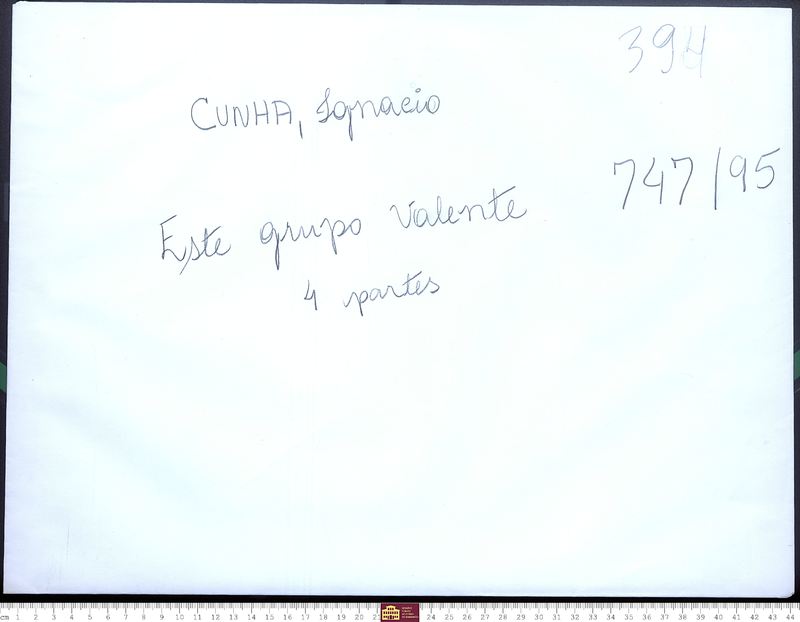 394
CUNHA, Ignacio
747/95
Este grupo Valente
4 partes
cm 1 2 3 4 5 6 7 8 9 10 11 12 13 14 15 16 17 18 19 20 21 24 25 26 27 28 29 30 31 32 33 34 35 36 37 38 39 40 41 42 43 44